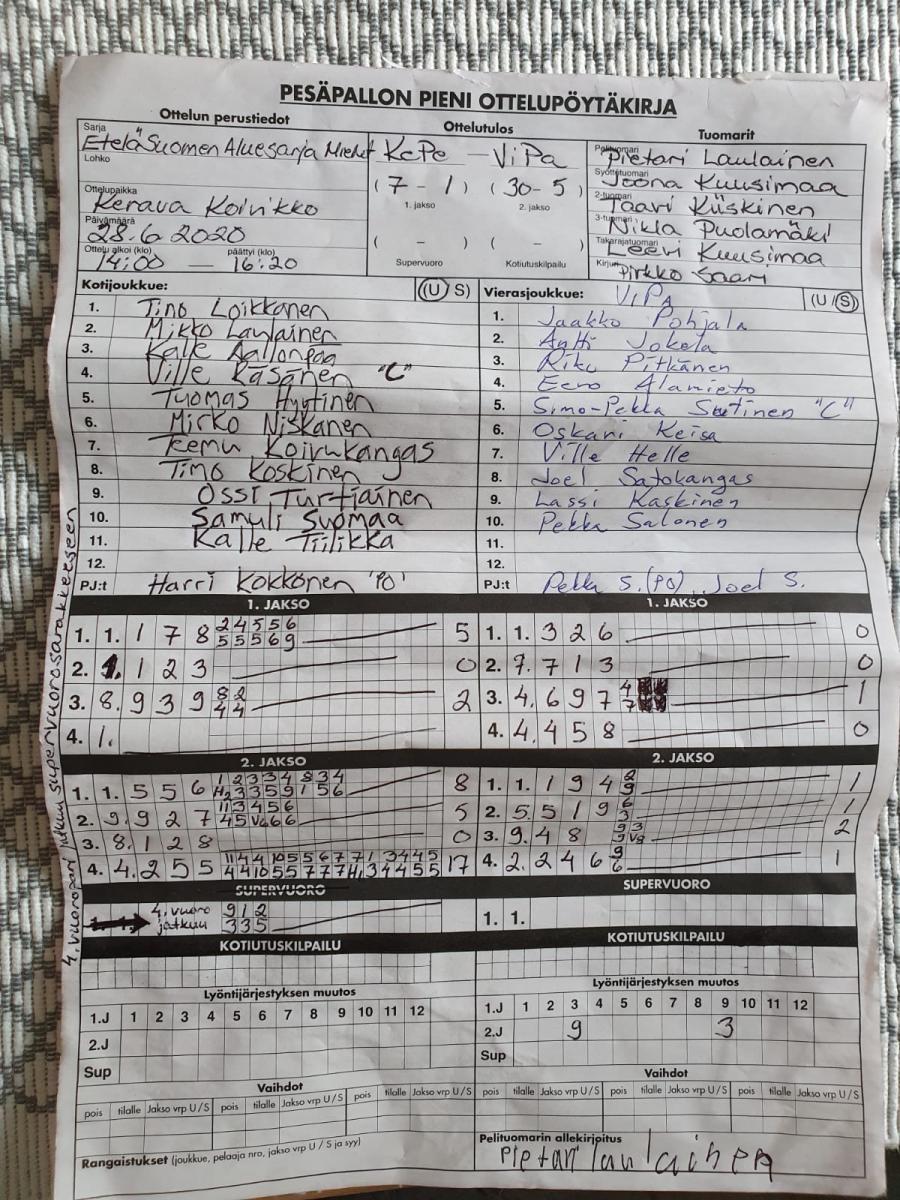 PESÄPALLON PIENI OTTELUPÖYTÄKIRJA
Ottelun perustiedot
Ottelutulos
Tuomarit
Sarja
Etelä Suomen Aluesarja Miehet
Lohko
Ottelupaikka
Kerava Koivikko
Päivämäärä
28.6 2020
Ottelu alkoi (klo) päättyi (klo)
14:00 — 16:20
KePe — ViPa
(7 - 1) (30- 5)
1. jakso 2. jakso
( - ) ( - )
Supervuoro Kotiutuskilpailu
Pelituomari
Pietari Laulainen
Syöttötuomari
Joona Kuusimaa
2-tuomari
Taavi Kiiskinen
3-tuomari
Nikla Puolamäki
Takarajatuomari
Leevi Kuusimaa
Kirjuri
Pirkko Saari
Kotijoukkue: (U S)
1. Timo Loikkanen
2. Mikko Laulainen
3. Kalle Aallonpää
4. Ville Räsänen "C"
5. Tuomas Hyytinen
6. Mirko Niskanen
7. Teemu Koivukangas
8. Timo Koskinen
9. Ossi Turtiainen
10. Samuli Suomaa
11. Kalle Tiilikka
12.
PJ:t Harri Kokkonen 'PO'
Vierasjoukkue: ViPA (U / S)
1. Jaakko Pohjala
2. Antti Jokela
3. Riku Pitkänen
4. Eero Alamieto
5. Simo-Pekka Sutinen "C"
6. Oskari Keisa
7. Ville Helle
8. Joel Satokangas
9. Lassi Kaskinen
10. Pekka Salonen
11.
12.
PJ:t Pekka S. (PO) Joel S.
4. vuoropari jatkuu supervuorosarakkeseen
1. JAKSO
1. 1. 1 7 8 2 4 5 5 6 5
5 5 5 6 9
2. 1. 1 2 3 0
3. 8. 9 3 9 8 2 2
4 4
4. 1.
1. JAKSO
1. 1. 3 2 6 0
2. 7. 7 1 3 0
3. 4. 6 9 7 4 1
7
4. 4. 4 5 8 0
2. JAKSO
1. 1. 5 5 6 1 2 3 3 4 8 3 4 8
H2 3 3 5 9 1 5 6
2. 9. 9 2 7 11 3 4 5 6 5
4 5 V6 6 6
3. 8. 1 2 8 0
4. 4. 2 5 5 11 4 4 10 5 5 6 7 7 1 3 4 4 5 17
4 4 10 5 5 7 7 7 H1 3 4 4 5 5
2. JAKSO
1. 1. 1 9 4 2 1
9
2. 5. 5 1 9 6 1
3
3. 9. 4 8 9 3 2
3 V9
4. 2. 2 4 6 9 1
6
SUPERVUORO
4. vuoro 9 1 2
jatkuu 3 3 5
SUPERVUORO
1. 1.
KOTIUTUSKILPAILU
KOTIUTUSKILPAILU
Lyöntijärjestyksen muutos
1.J 1 2 3 4 5 6 7 8 9 10 11 12
2.J
Sup
Lyöntijärjestyksen muutos
1.J 1 2 3 4 5 6 7 8 9 10 11 12
2.J 9 3
Sup
Vaihdot
pois tilalle Jakso vrp U / S pois tilalle Jakso vrp U / S pois tilalle Jakso vrp U / S
Vaihdot
pois tilalle Jakso vrp U / S pois tilalle Jakso vrp U / S pois tilalle Jakso vrp U / S
Rangaistukset (joukkue, pelaaja nro, jakso vrp U / S ja syy)
Pelituomarin allekirjoitus
Pietari laulainen